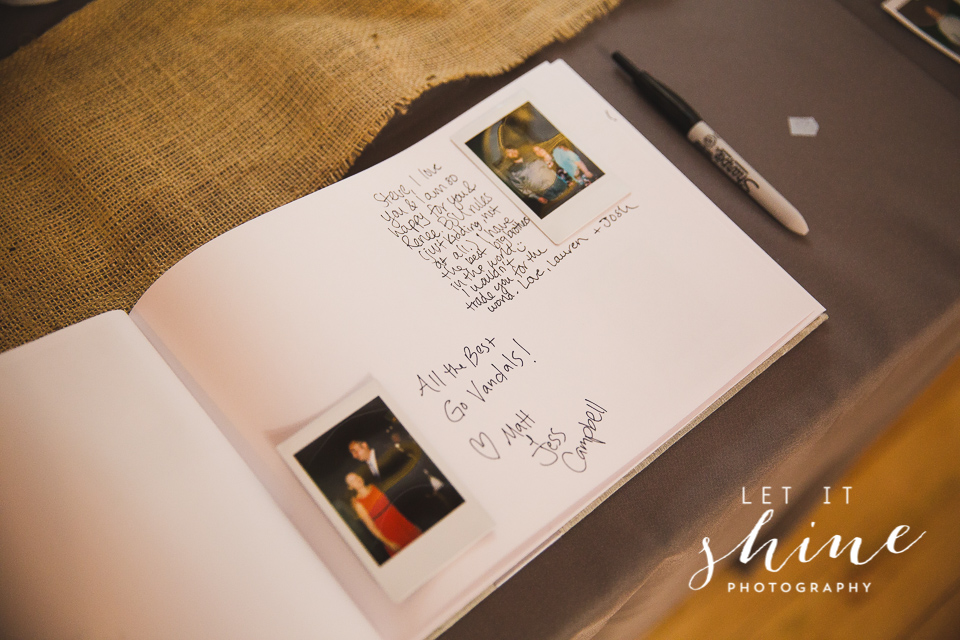 Steve, I love
you & I am so
happy for you &
Renee. BSU rules
(just kidding, not
at all!) I have
the best big brother
in the world :)
I wouldn't
trade you for the
world. Love, Lauren + Josh
All the Best
Go Vandals!
♡ Matt
+
Jess
Campbell
Sharpie
LET IT
shine
PHOTOGRAPHY